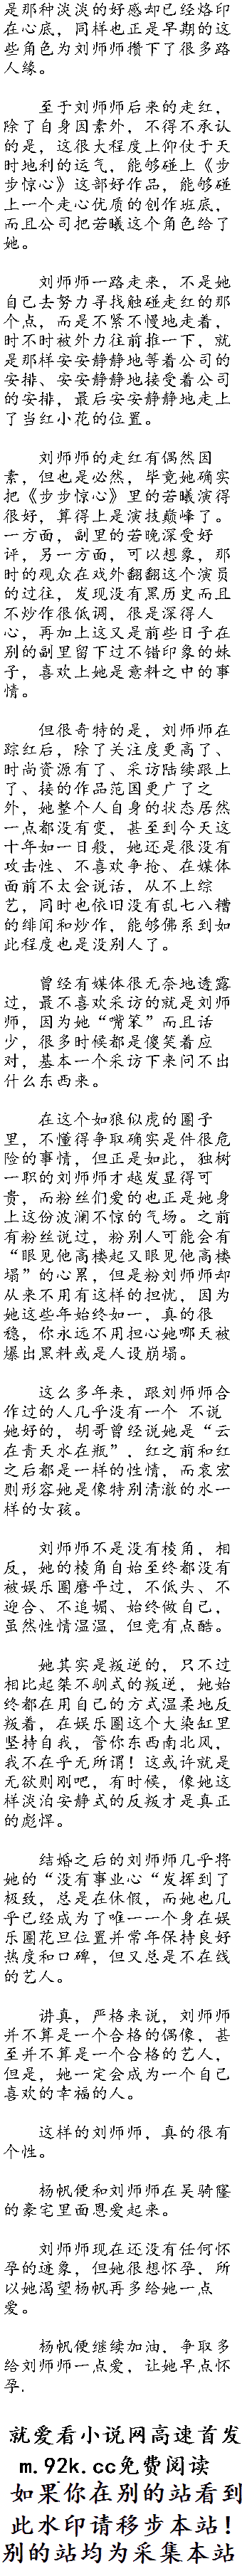 是那种淡淡的好感却已经烙印
在心底，同样也正是早期的这
些角色为刘师师攒下了很多路
人缘。
至于刘师师后来的走红，
除了自身因素外，不得不承认
的是，这很大程度上仰仗于天
时地利的运气，能够碰上《步
步惊心》这部好作品，能够碰
上一个走心优质的创作班底，
而且公司把若曦这个角色给了
她。
刘师师一路走来，不是她
自己去努力寻找触碰走红的那
个点，而是不紧不慢地走着，
时不时被外力往前推一下，就
是那样安安静静地等着公司的
安排、安安静静地接受着公司
的安排，最后安安静静地走上
了当红小花的位置。
刘师师的走红有偶然因
素，但也是必然，毕竟她确实
把《步步惊心》里的若曦演得
很好，算得上是演技巅峰了。
一方面，剧里的若晚深受好
评，另一方面，可以想象，那
时的观众在戏外翻翻这个演员
的过往，发现没有黑历史而且
不炒作很低调，很是深得人
心，再加上这又是前些日子在
别的剧里留下过不错印象的妹
子，喜欢上她是意料之中的事
情。
但很奇特的是，刘师师在
踪红后，除了关注度更高了、
时尚资源有了、采访陆续跟上
了、接的作品范围更广了之
外，她整个人自身的状态居然
一点都没有变，甚至到今天这
十年如一日般，她还是很没有
攻击性、不喜欢争抢、在媒体
面前不太会说话，从不上综
艺，同时也依旧没有乱七八糟
的绯闻和炒作，能够佛系到如
此程度也是没别人了。
曾经有媒体很无奈地透露
过，最不喜欢采访的就是刘师
师，因为她“嘴笨”而且话
少，很多时候都是傻笑着应
对，基本一个采访下来问不出
什么东西来。
在这个如狼似虎的圈子
里，不懂得争取确实是件很危
险的事情，但正是如此，独树
一职的刘师师才越发显得可
贵，而粉丝们爱的也正是她身
上这份波澜不惊的气场。之前
有粉丝说过，粉别人可能会有
“眼见他高楼起又眼见他高楼
塌”的心累，但是粉刘师师却
从来不用有这样的担忧，因为
她这些年始终如一，真的很
稳，你永远不用担心她哪天被
爆出黑料或是人设崩塌。
这么多年来，跟刘师师合
作过的人几乎没有一个 不说
她好的，胡哥曾经说她是“云
在青天水在瓶”，红之前和红
之后都是一样的性情，而袁宏
则形容她是像特别清澈的水一
样的女孩。
刘师师不是没有棱角，相
反，她的棱角自始至终都没有
被娱乐圈磨平过，不低头、不
迎合、不追媚、始终做自己，
虽然性情温温，但竞有点酷。
她其实是叛逆的，只不过
相比起桀不驯式的叛逆，她始
终都在用自己的方式温柔地反
叛着，在娱乐圈这个大染缸里
坚持自我，管你东西南北风，
我不在乎无所谓！这或许就是
无欲则刚吧，有时候，像她这
样淡泊安静式的反叛才是真正
的彪悍。
结婚之后的刘师师几乎将
她的“没有事业心“发挥到了
极致，总是在休假，而她也几
乎已经成为了唯一一个身在娱
乐圈花旦位置并常年保持良好
热度和口碑，但又总是不在线
的艺人。
讲真，严格来说，刘师师
并不算是一个合格的偶像，甚
至并不算是一个合格的艺人，
但是，她一定会成为一个自己
喜欢的幸福的人。
这样的刘师师，真的很有
个性。
杨帆便和刘师师在吴骑隆
的豪宅里面恩爱起来。
刘师师现在还没有任何怀
孕的迹象，但她很想怀孕，所
以她渴望杨帆再多给她一点
爱。
杨帆便继续加油，争取多
给刘师师一点爱，让她早点怀
孕.
就爱看小说网高速首发
m.92k.cc免费阅读
如果你在别的站看到
此水印请移步本站！
别的站均为采集本站